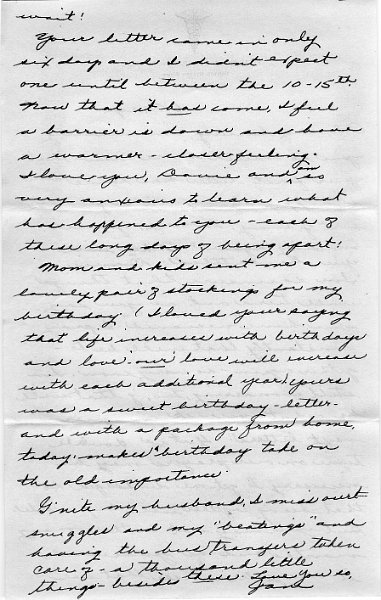 wait!
Your letter came in only
six days and I didn't expect
one until between the 10-15th.
Now that it has come, I feel
a barrier is down and have
a warmer - closer feeling.
I love you, Davie and am so
very anxious to learn what
has happened to you - each of
these long days of being apart!
Mom and kids sent me a
lovely pair of stockings for my
birthday (I loved your saying
that life increases with birthdays
and love - our love will increase
with each additional year) yours
was a sweet birthday - letter -
and with a package from home,
today - makes birthday take on
the old importance.
G'nite my husband, I miss our
snuggles and my "beatings" and
having the bus transfers taken
care of - a thousand little
things - besides these. Love You so,
Jane